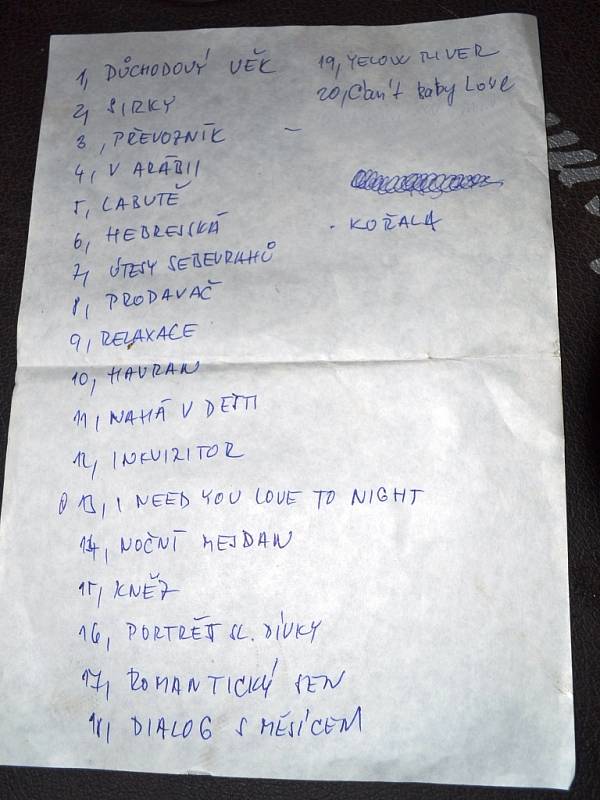 1, DŮCHODOVÝ VĚK
2, SIRKY
3, PŘEVOZNÍK –
4, V ARÁBII
5, LABUTĚ
6, HEBREJSKÁ
7, ÚTESY SEBEVRAHŮ
8, PRODAVAČ
9, RELAXACE
10, HAVRAN
11, NAHÁ V DEŠTI
12, INKVIZITOR
13, I NEED YOU LOVE TO NIGHT
14, NOČNÍ MEJDAN
15, KNĚZ
16, PORTRÉT SL. DÍVKY
17, ROMANTICKÝ SEN
18, DIALOG S MĚSÍCEM
19, YELOW RIVER
20, Can't baby Love
- KOŘALA